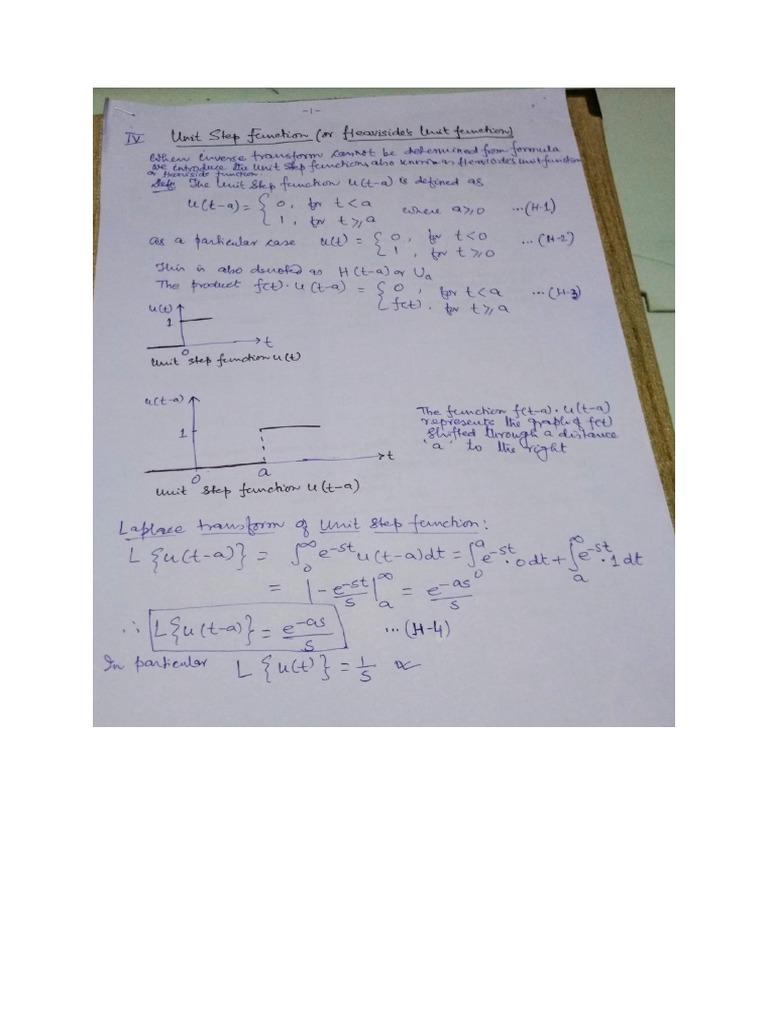 -1-
IV Unit Step Function (or Heaviside's Unit function)
When inverse transform cannot be determined from formula
we introduce the Unit step function, also known as Heaviside's Unit function
or Heaviside function.
Defn: The Unit Step function u(t-a) is defined as
u(t-a) = { 0, for t < a
1, for t ⩾ a where a ⩾ 0 ...(H-1)
as a particular case u(t) = { 0, for t < 0
1, for t ⩾ 0 ...(H-2)
This is also denoted as H(t-a) or Ua
The product f(t)· u(t-a) = { 0, for t < a
f(t). for t ⩾ a ...(H-3)
u(t)
1
0
t
Unit step function u(t)
u(t-a)
1
0
a
t
Unit step function u(t-a)
The function f(t-a)· u(t-a)
represents the graph of f(t)
shifted through a distance
'a' to the right
Laplace transform of Unit step function:
L{u(t-a)} = ∫₀^∞ e^-st u(t-a)dt = ∫₀^a e^-st · 0 dt + ∫ₐ^∞ e^-st · 1 dt
= |-e^-st/s|ₐ^∞ = e^-as/s
∴ L{u(t-a)} = e^-as/s ...(H-4)
In particular L{u(t)} = 1/s